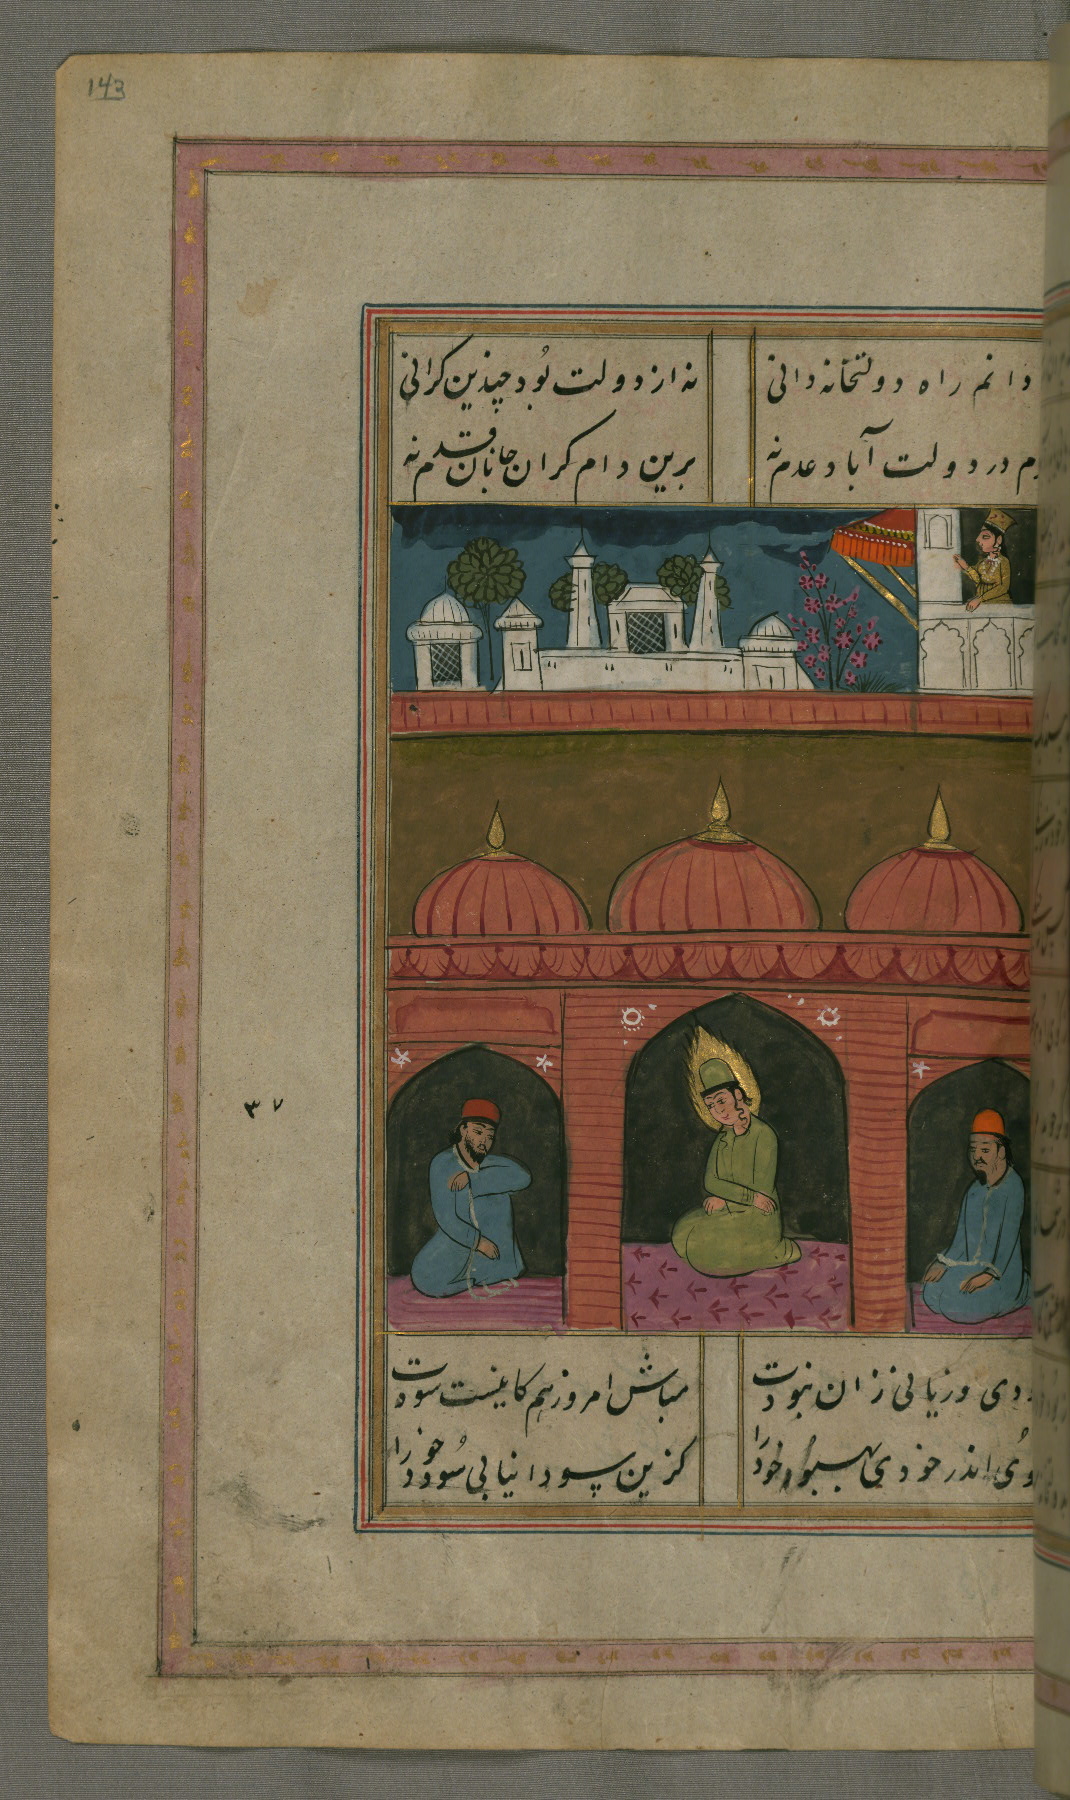 143
دانم راه دولتخانه دانی نه از دولت بود چندین گرانی
در دولت آباد عدم نه برین دام گران جانان قدم نه
۳۷
وزیانی زان نبودت مباش امروز هم کاینست سودت
اندر خودی بهبود خود را کزین سودا نیابی سود خود را